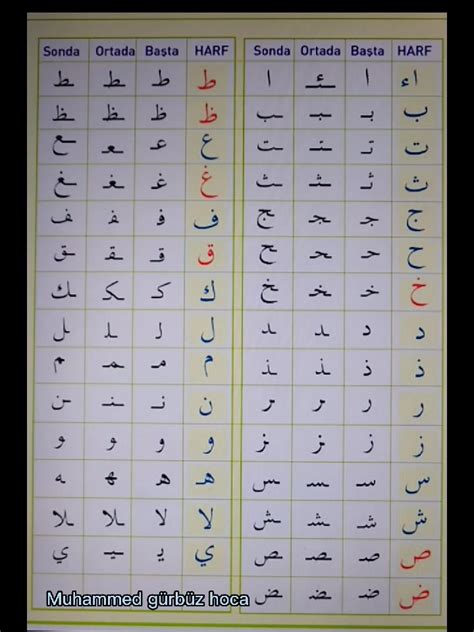 Sonda Ortada Başta HARF Sonda Ortada Başta HARF
اء ا ـئـ ا ط طـ ـطـ ـط
ب بـ ـبـ ـب ظ ظـ ـظـ ـظ
ت تـ ـتـ ـت ع عـ ـعـ ـع
ث ثـ ـثـ ـث غ غـ ـغـ ـغ
ج جـ ـجـ ـج ف فـ ـفـ ـف
ح حـ ـحـ ـح ق قـ ـقـ ـق
خ خـ ـخـ ـخ ك كـ ـكـ ـك
د د ـد ـد ل لـ ـلـ ـل
ذ ذ ـذ ـذ م مـ ـمـ ـم
ر ر ـر ـر ن نـ ـنـ ـن
ز ز ـز ـز و و ـو ـو
س سـ ـسـ ـس ه هـ ـهـ ـه
ش شـ ـشـ ـش لا لا ـلا ـلا
ص صـ ـصـ ـص ي يـ ـيـ ي
ض ضـ ـضـ ـض
Muhammed gürbüz hoca